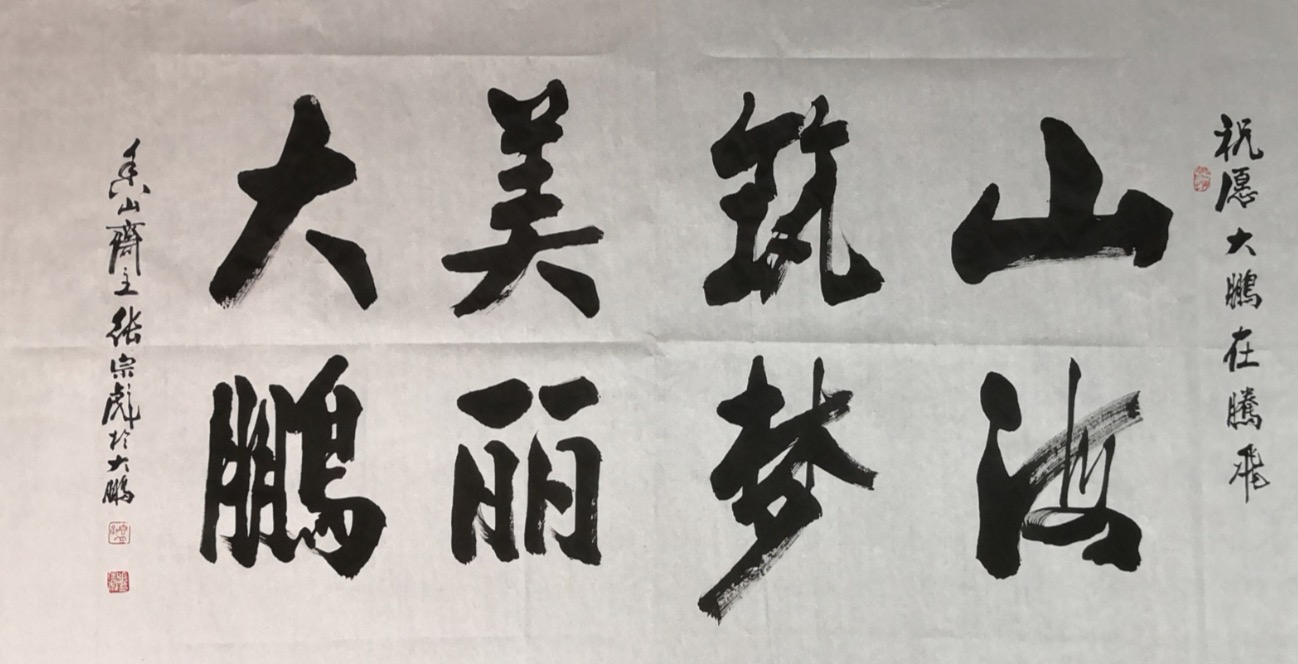 祝愿大鹏在腾飞
山海
筑梦
美丽
大鹏
香山斋主张宗彪于大鹏